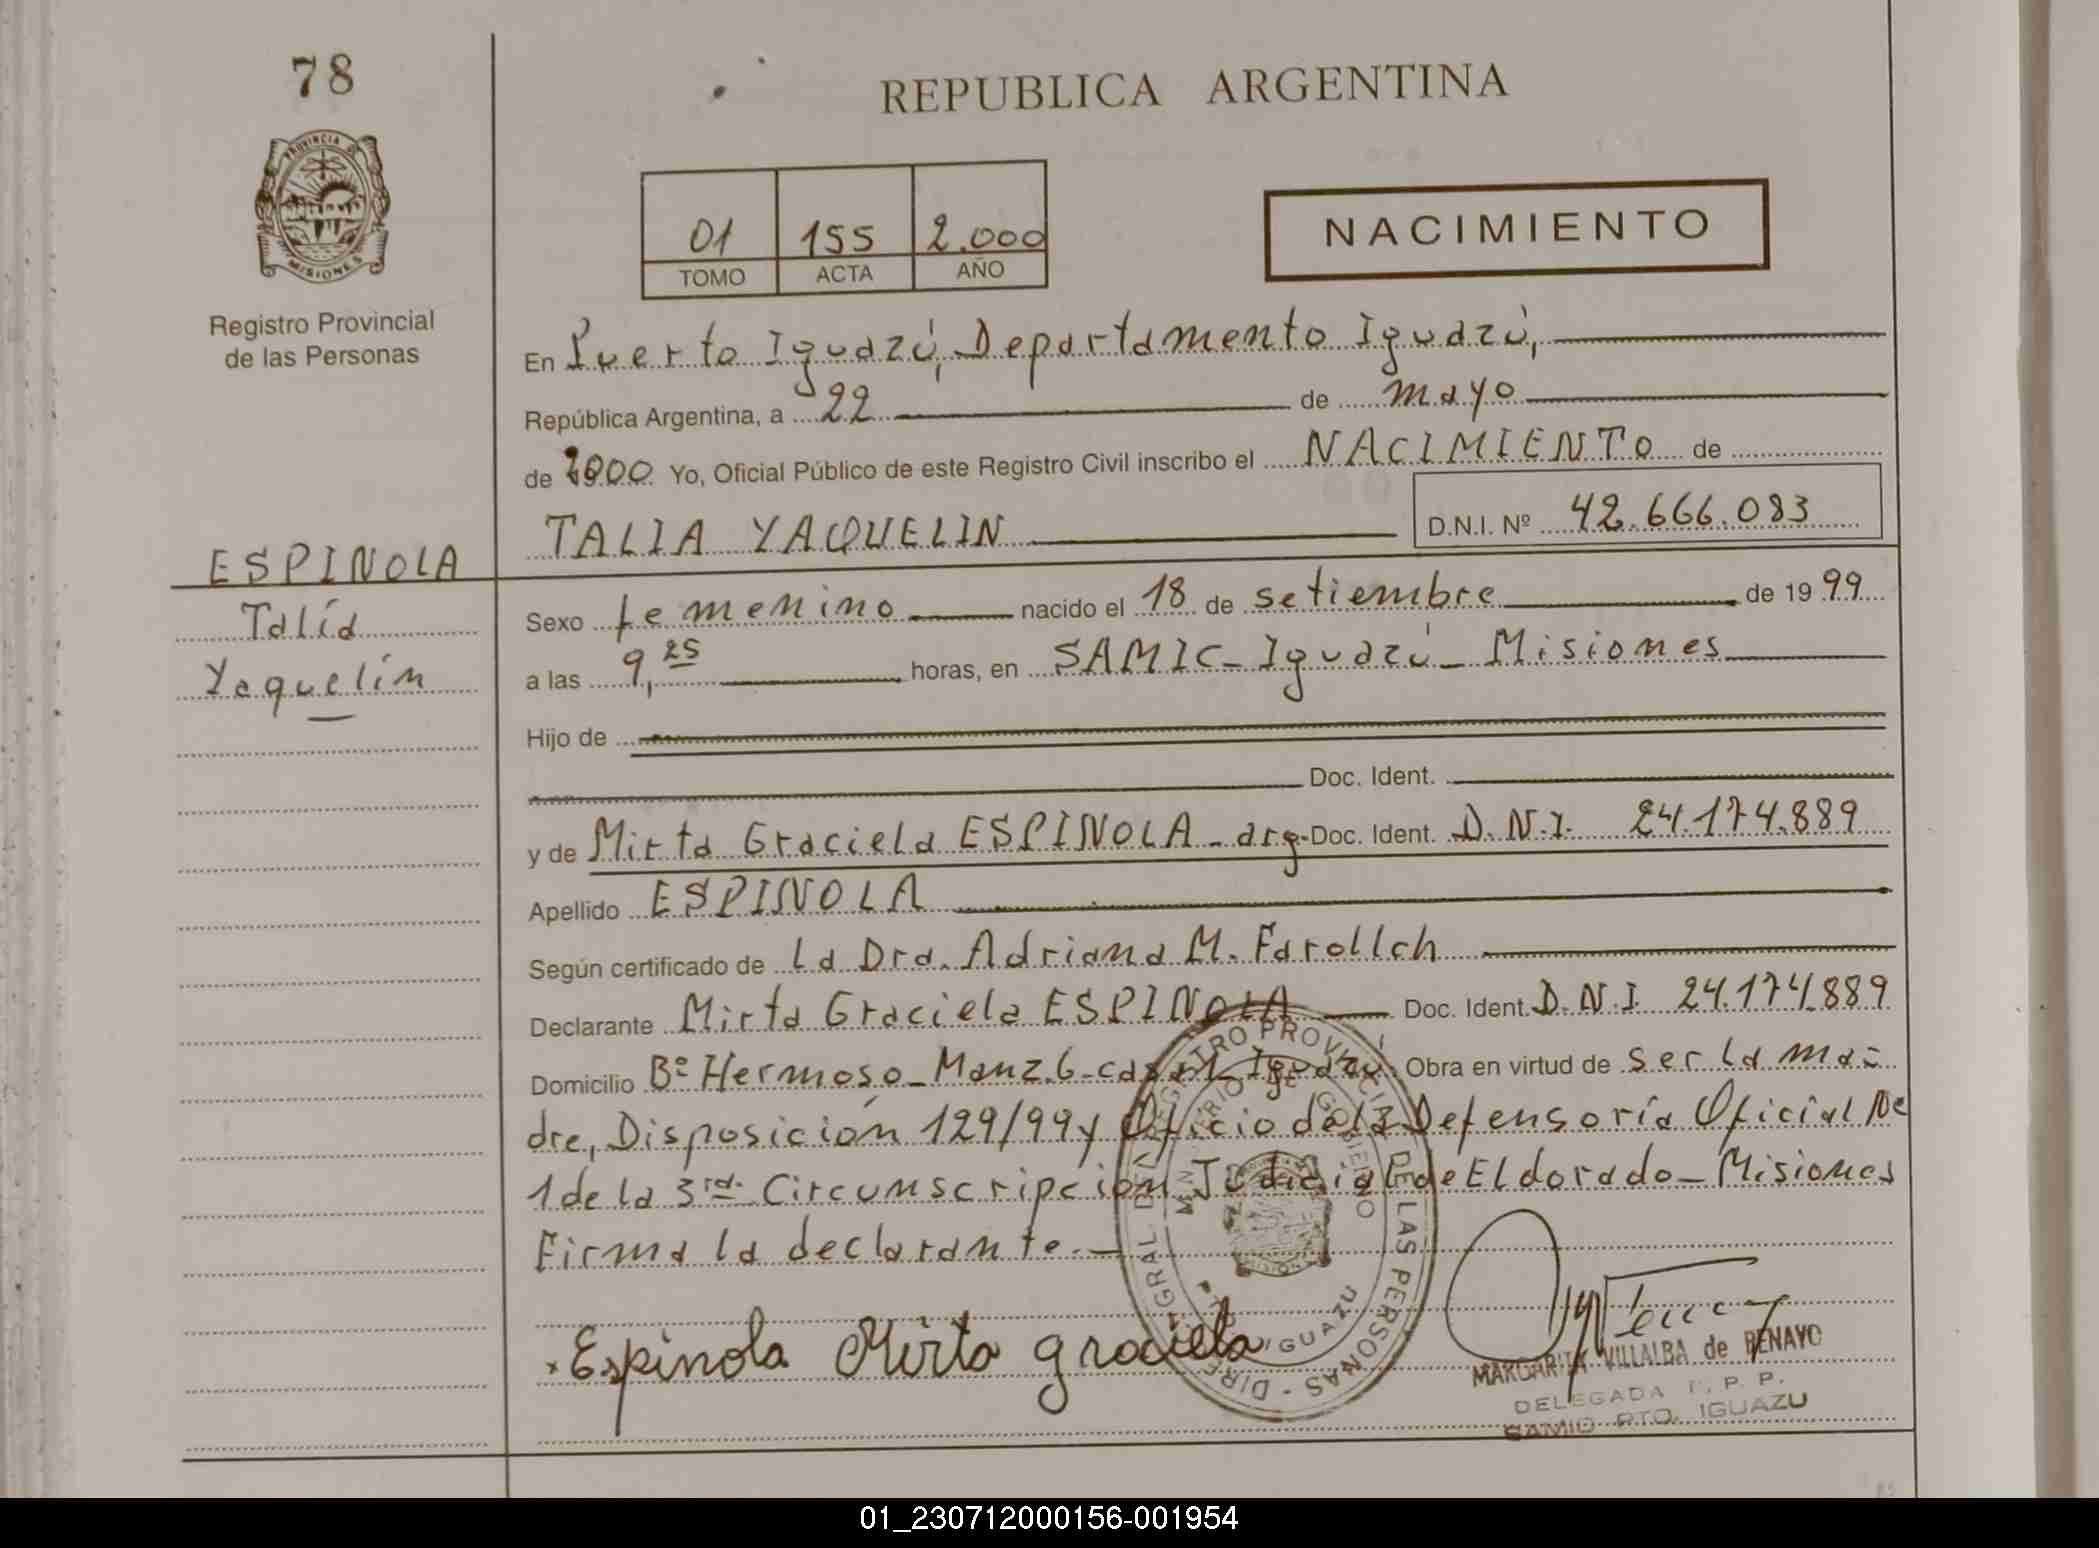 78
REPUBLICA ARGENTINA
PROVINCIA DE
MISIONES
01 155 2.000
TOMO ACTA AÑO
NACIMIENTO
Registro Provincial
de las Personas
En Puerto Iguazú, Departamento Iguazú,
República Argentina, a 22 de mayo
de 2000 Yo, Oficial Público de este Registro Civil inscribo el NACIMIENTO de
TALIA YAQUELIN D.N.I. Nº 42.666.083
ESPINOLA
Talía
Yaquelín
Sexo femenino nacido el 18 de setiembre de 1999
a las 9,25 horas, en SAMIC - Iguazú - Misiones
Hijo de
Doc. Ident.
y de Mirta Graciela ESPINOLA - arg. Doc. Ident. D.N.I. 24.174.889
Apellido ESPINOLA
Según certificado de La Dra. Adriana M. Farollch
Declarante Mirta Graciela ESPINOLA Doc. Ident. D.N.I. 24.174.889
Domicilio Bº Hermoso - Manz. 6 - Iguazú Obra en virtud de ser la ma=
dre, Disposición 129/99 y Oficio de la Defensoría Oficial Nº
1 de la 3ra. Circunscripción Judicial de Eldorado - Misiones
Firma la declarante.-
Espinola Mirta graciela
DIRE GRAL DEL REGISTRO PROVINCIAL DE LAS PERSONAS -
MINISTERIO DE GOBIERNO
MISIONES
IGUAZU
MARGARITA VILLALBA de BENAYO
DELEGADA R. P. P.
SAMIC PTO. IGUAZU
01_230712000156-001954